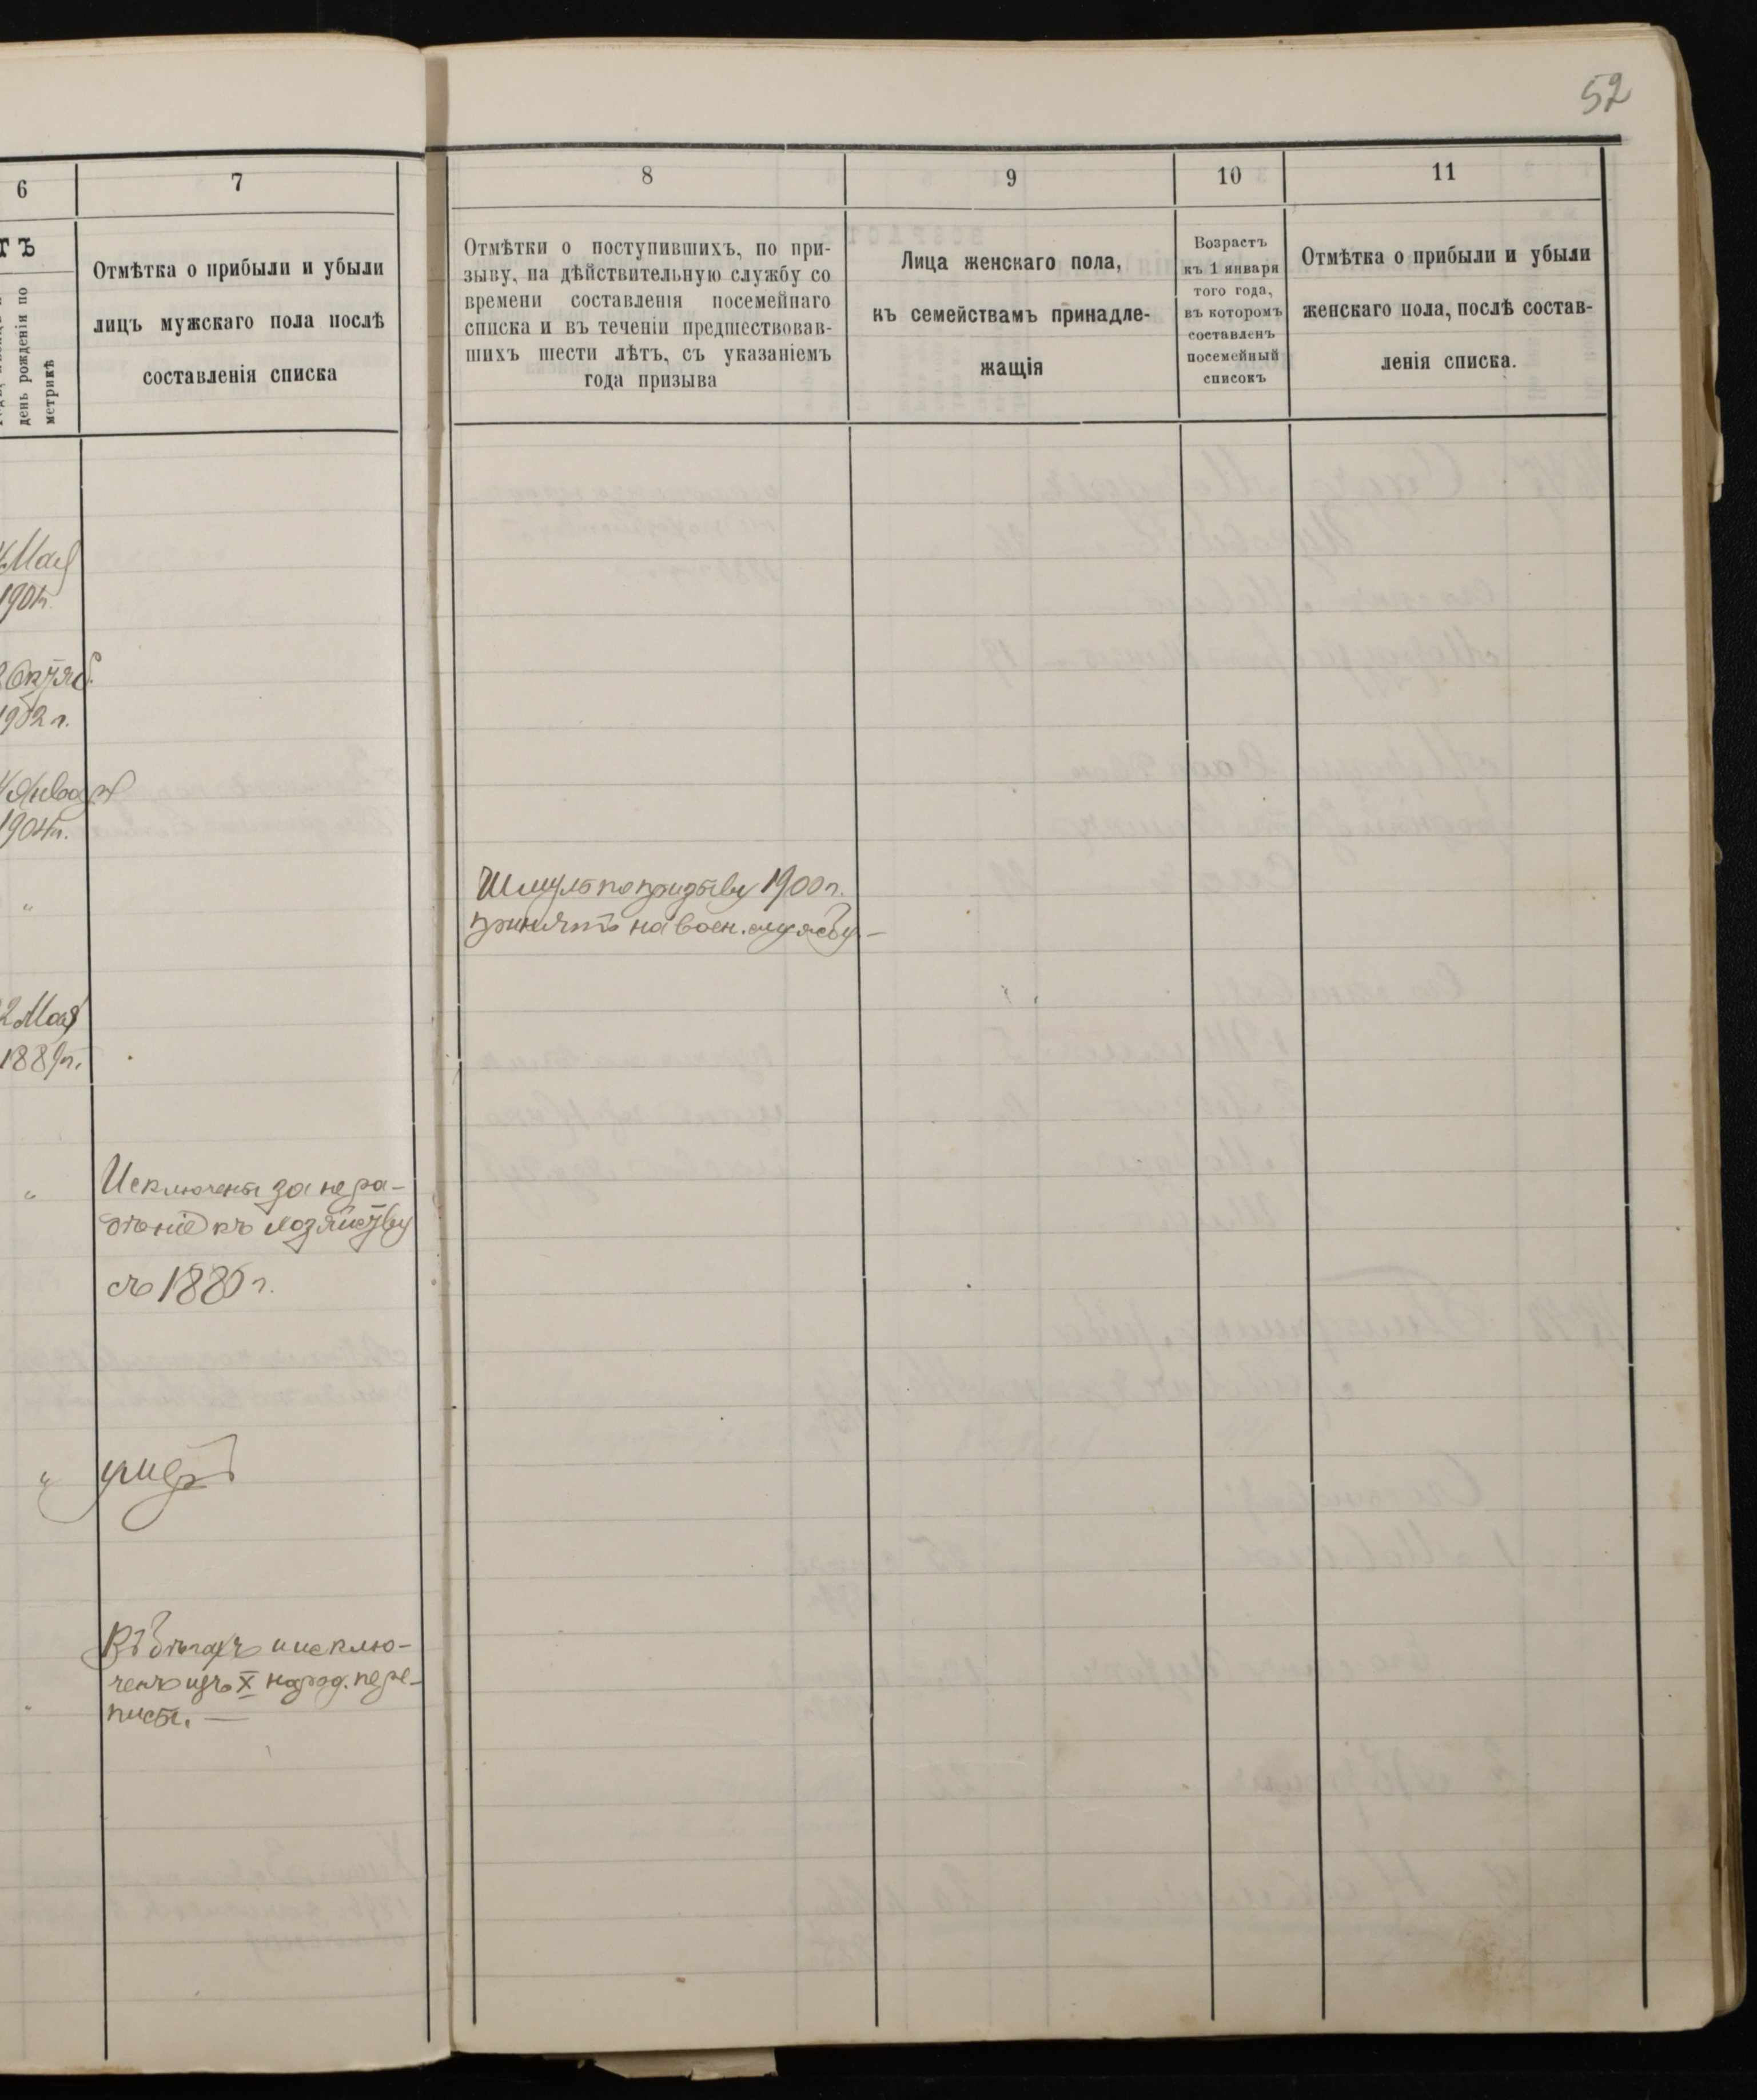 52
6
7
8
9
10
11
ТЪ
день рожденія по
метрикѣ
Отмѣтка о прибыли и убыли
лицъ мужскаго пола послѣ
составленія списка
Отмѣтки о поступившихъ, по при-
зыву, на дѣйствительную службу со
времени составленія посемейнаго
списка и въ теченіи предшествовав-
шихъ шести лѣтъ, съ указаніемъ
года призыва
Лица женскаго пола,
къ семействамъ принадле-
жащія
Возрастъ
къ 1 января
того года,
въ которомъ
составленъ
посемейный
списокъ
Отмѣтка о прибыли и убыли
женскаго пола, послѣ состав-
ленія списка.
Мая
Октяб.
1902 г.
Января
1904 г.
Шмуль по призыву 1900 г.
принятъ на воен. службу. —
2 Мая
1889 г.
Исключены за нера-
дѣніе къ хозяйству
съ
умеръ
Въ бѣгахъ и исклю-
ченъ изъ X народ. пере-
писи. —